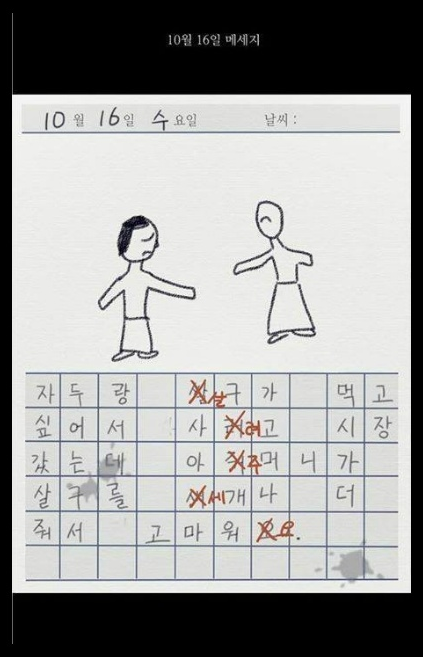 10월 16일 메세지
10월 16일 수요일 날씨 :
자두랑 살구가 먹고
싶어서 사려고 시장
갔는데 아주머니가
살구를 세개나 더
줘서 고마워요.